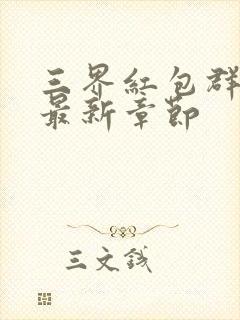 三界紅包群
最新章節
三文錢